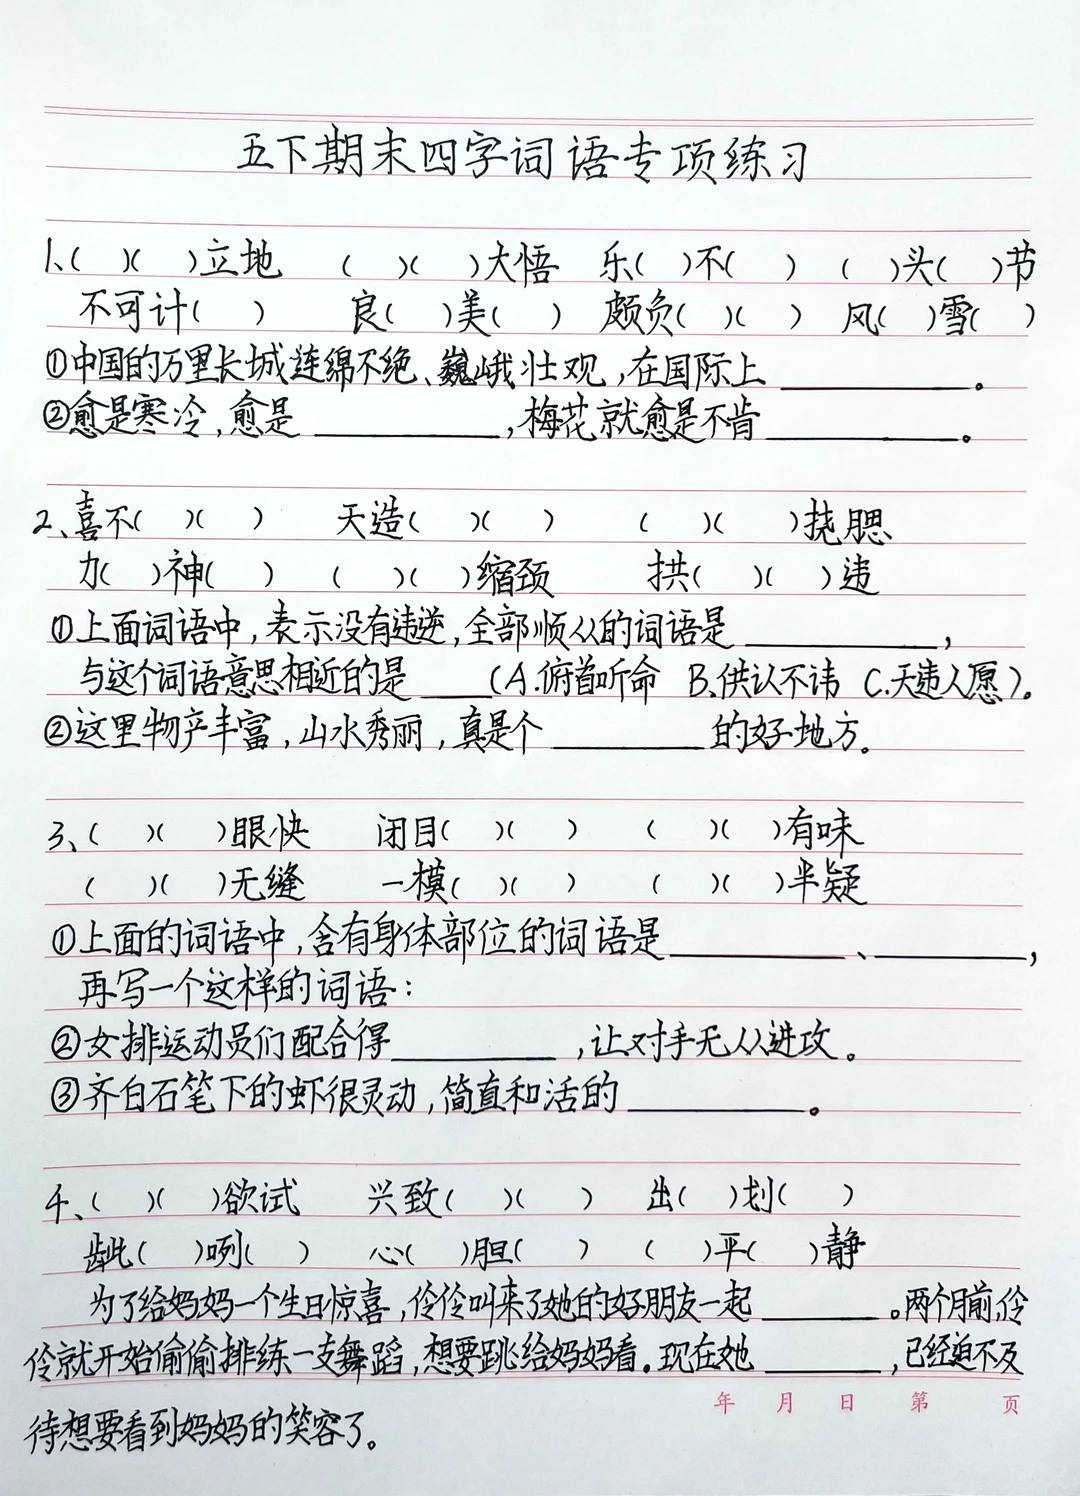 五下期末四字词语专项练习
1、(  )(  )立地  (  )(  )大悟  乐(  )不(  )  (  )头(  )节
不可计(  )  良(  )美(  )  颇负(  )(  )  风(  )雪(  )
①中国的万里长城连绵不绝、巍峨壮观,在国际上________。
②愈是寒冷,愈是________,梅花就愈是不肯________。
2、喜不(  )(  )  天造(  )(  )  (  )(  )挠腮
力(  )神(  )  (  )(  )缩颈  拱(  )(  )违
①上面词语中,表示没有违逆,全部顺从的词语是________,
与这个词语意思相近的是____(A.俯首听命 B.供认不讳 C.天违人愿)。
②这里物产丰富,山水秀丽,真是个________的好地方。
3、(  )(  )眼快  闭目(  )(  )  (  )(  )有味
(  )(  )无缝  一模(  )(  )  (  )(  )半疑
①上面的词语中,含有身体部位的词语是________、________,
再写一个这样的词语:
②女排运动员们配合得________,让对手无从进攻。
③齐白石笔下的虾很灵动,简直和活的________。
4、(  )(  )欲试  兴致(  )(  )  出(  )划(  )
龇(  )咧(  )  心(  )胆(  )  (  )平(  )静
为了给妈妈一个生日惊喜,伶伶叫来了她的好朋友一起________。两个月前,伶
伶就开始偷偷排练一支舞蹈,想要跳给妈妈看。现在她________,已经迫不及
年 月 日 第 页
待想要看到妈妈的笑容了。